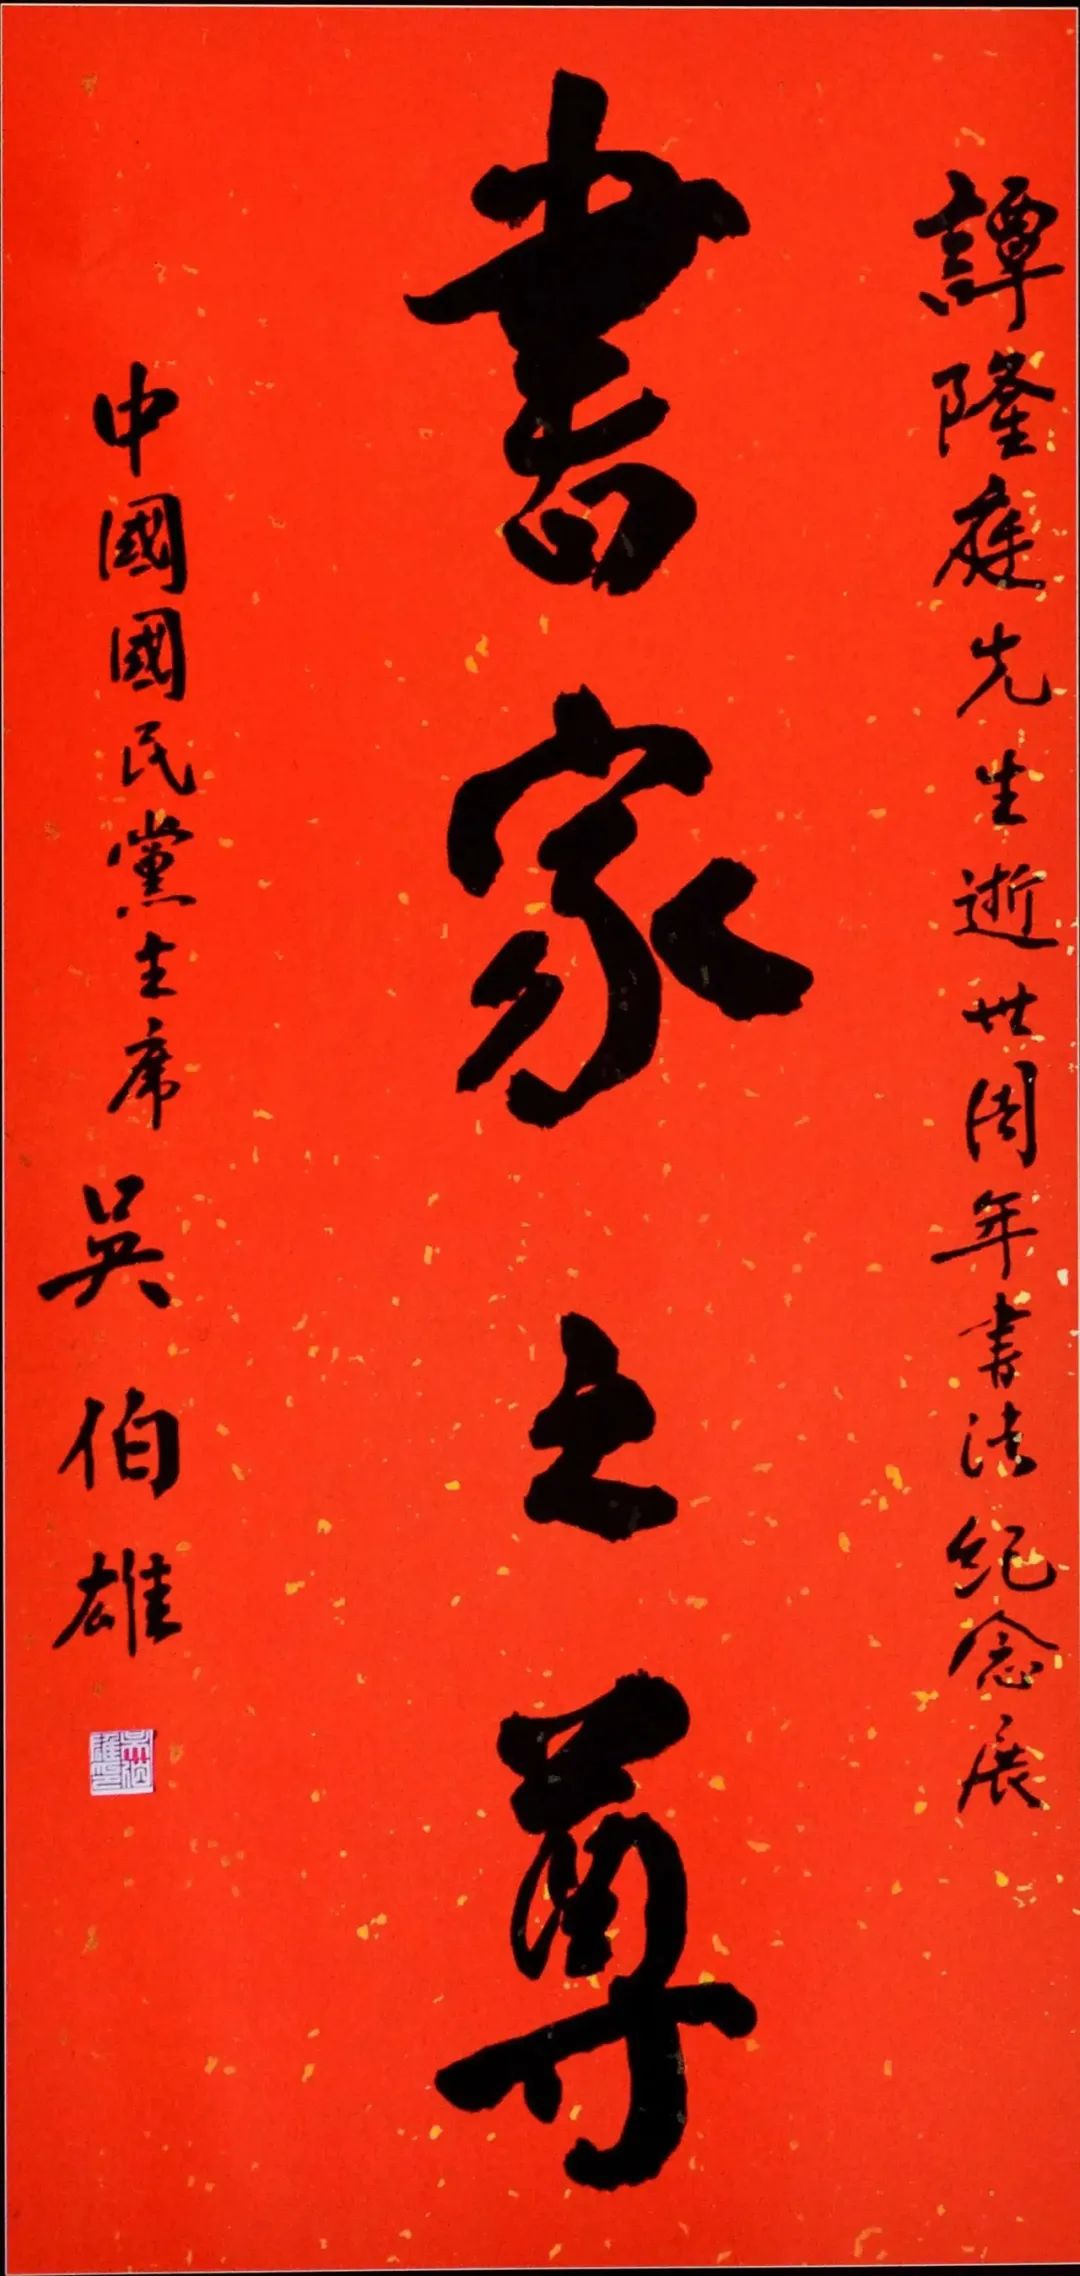 譚隆庭先生逝世周年書法紀念展
書家之尊
中國國民黨主席 吳伯雄